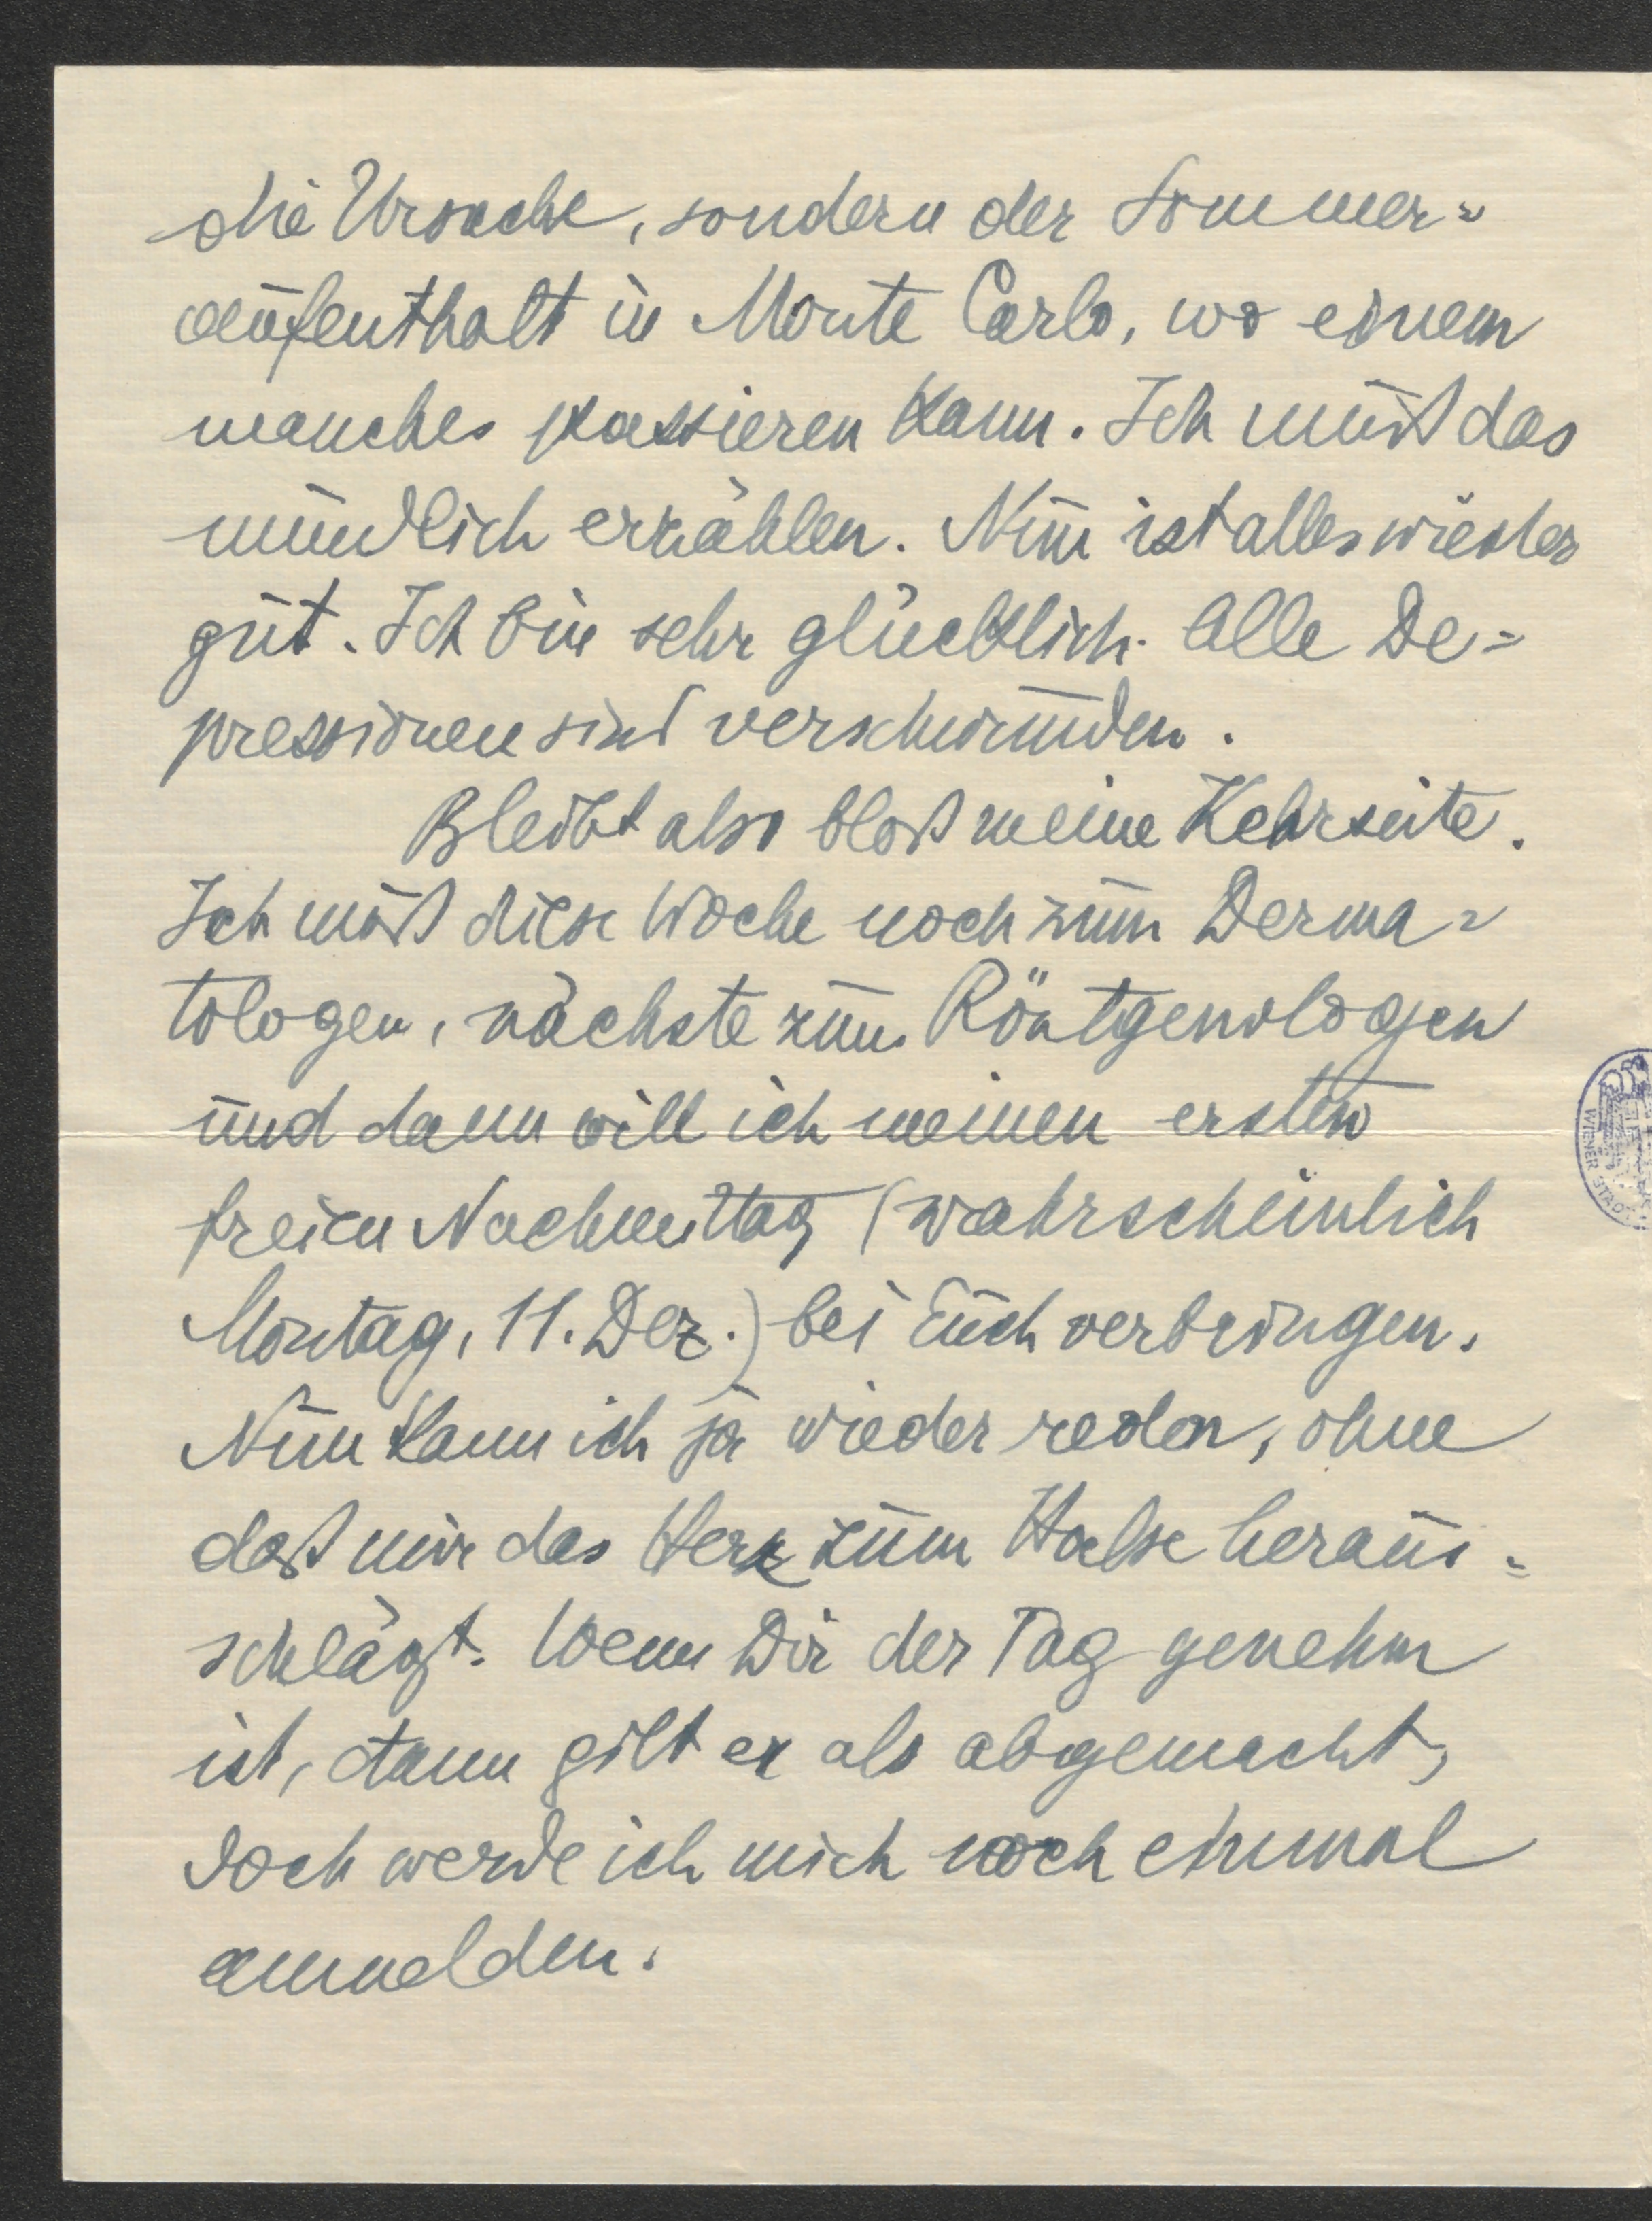 die Ursache, sondern der Sommer=
aufenthalt in Monte Carlo, wo einem
manches passieren kann. Ich muß das
mündlich erzählen. Nun ist alles wieder
gut. Ich bin sehr glücklich. Alle De=
pressionen sind verschwunden.
Bleibt also bloß meine Kehrseite.
Ich muß diese Woche noch zum Derma=
tologen, nächste zum Röntgenologen
und dann will ich meinen ersten
freien Nachmittag (wahrscheinlich
Montag, 11. Dez.) bei Euch verbringen.
Nun kann ich ja wieder reden, ohne
daß mir das Herz zum Halse heraus=
schlägt. Wenn Dir der Tag genehm
ist, dann gilt er als abgemacht,
doch werde ich mich noch einmal
anmelden.
WIENER STADT